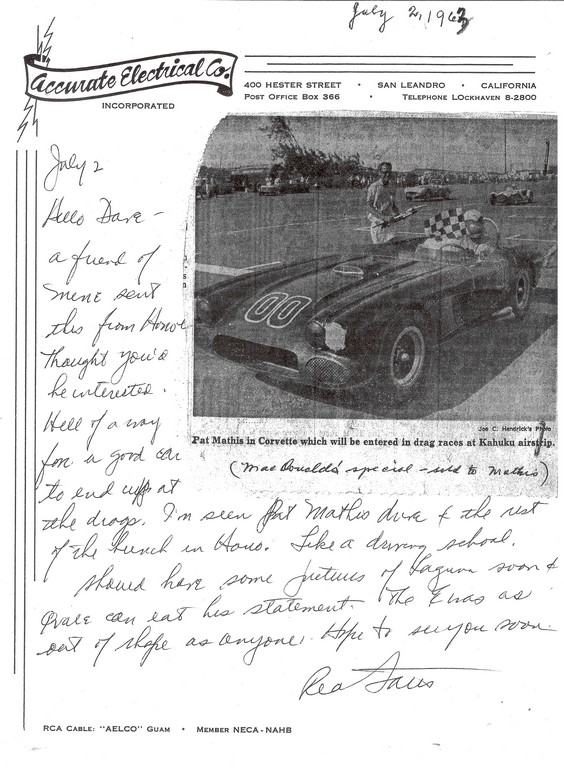 July 2, 1963
Accurate Electrical Co.
INCORPORATED
400 HESTER STREET • SAN LEANDRO • CALIFORNIA
POST OFFICE BOX 366 • TELEPHONE LOCKHAVEN 8-2800
July 2
Hello Dave –
a friend of
mine sent
this from Hono
Thought you'd
be interested.
Hell of a way
for a good car
to end up at
the drags. I'm seen Pat Mathis dive & the rest
of the bunch in Hono. Like a driving school.
Should have some pictures of Laguna soon &
Qvale can eat his statement. The E was as
out of shape as anyone. Hope to see you soon.
00
Joe C. Hendrick's Photo
Pat Mathis in Corvette which will be entered in drag races at Kahuku airstrip.
(MacDonalds' special – sold to Mathis)
RCA CABLE: "AELCO" GUAM • MEMBER NECA-NAHB